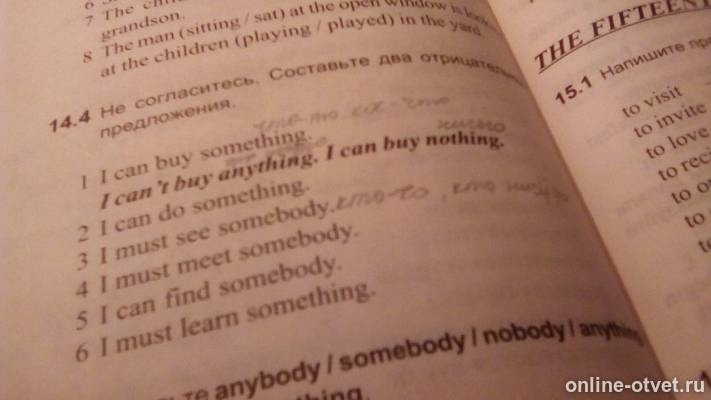 7 The chi
grandson.
8 The man (sitting / sat) at the open window is look
at the children (playing / played) in the yard
14.4 Не согласитесь. Составьте два отрицательн
предложения.
1 I can buy something.
I can't buy anything. I can buy nothing.
2 I can do something.
3 I must see somebody. кто-то, кто
4 I must meet somebody.
5 I can find somebody.
6 I must learn something.
те anybody / somebody / nobody / anything
thing.
THE FIFTEENT
15.1 Напишите пр
to visit
to invite
to love
to reci
to o
to
online-otvet.ru